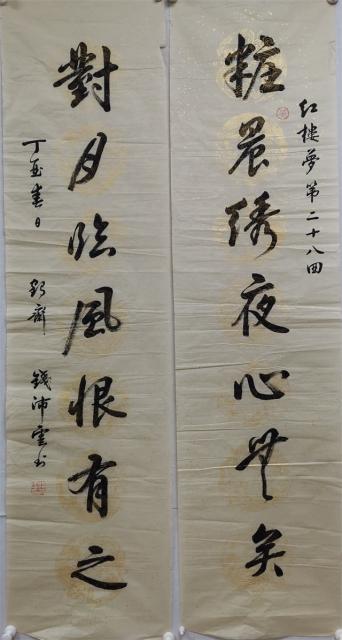 红楼夢第二十八回
粧晨绣夜心無矣
對月臨風恨有之
丁酉春日 錢沛雲书